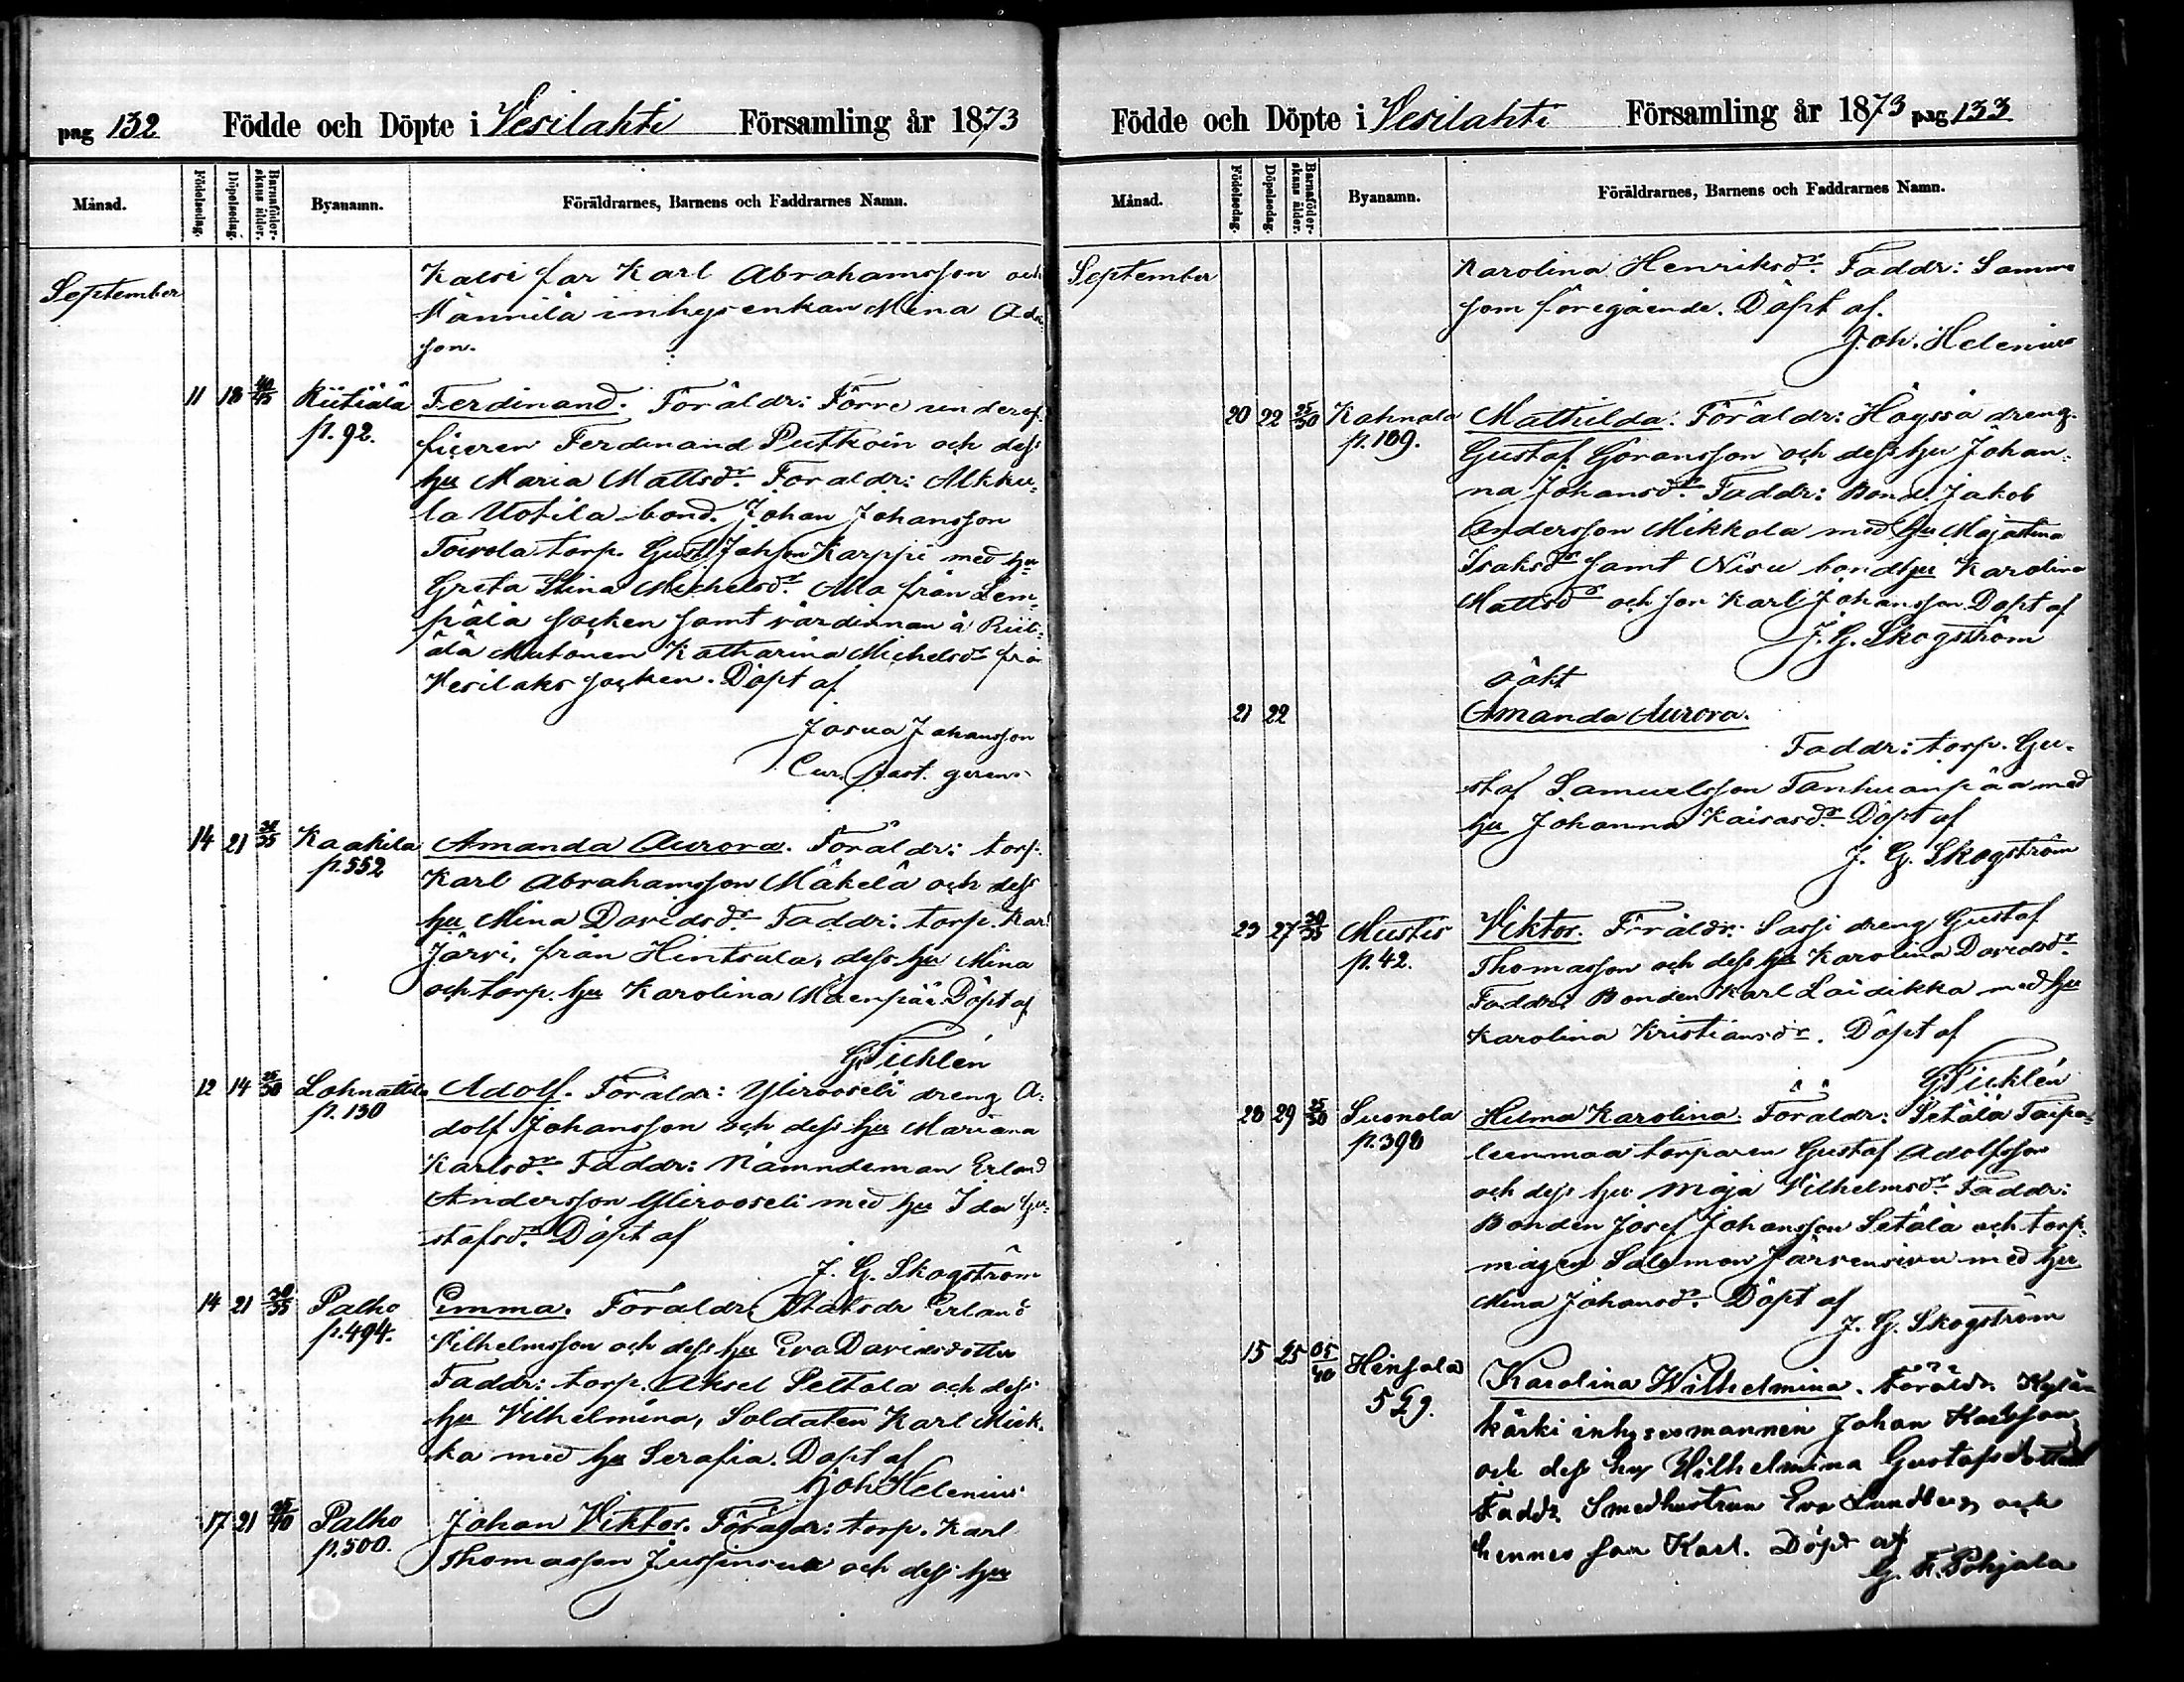 pag 132 Födde och Döpte i Vesilahti Församling år 1873
Månad. Födelsedag. Döpelsedag. Barnaföderskans ålder. Byanamn. Föräldrarnes, Barnens och Faddrarnes Namn.
September
Kalsi far Karl Abrahamsson och
Männilä inhys enkan Mina Ada
son.
11 18 40/45 Riitiälä Ferdinand. Föräldr: Förre underof-
p. 92. ficeren Ferdinand Putkoin och dess
hu Maria Mattsdr. Foraldr: Alkku-
la Uotila bond. Johan Johansson
Toivola torp. Gust. Johsson Karppi med hu
Greta Stina Michelsdr. Alla från Lem-
pälä socken samt värdinnan å Riit-
älä Mutonen Katharina Michelsdr frå
Vesilaks socken. Döpt af
Josua Johansson
Cur. past. gerens
14 21 30/35 Kaakila Amanda Aurora. Föräldr: torp.
p. 552 Karl Abrahamsson Mäkelä och dess
hu Mina Davidsdr. Faddr: torp. Karl
Järvi, från Hintsala, dess hu Mina
och torp. hu Karolina Mäenpää. Döpt af
G. Ticklén
12 14 25/30 Lahnattila Adolf. Föräldr: Ylirooseli dreng A-
p. 130 dolf Johansson och dess hu Mariana
Karlsdr. Faddr: Nämndeman Erland
Andersson Ylirooseli med hu Ida Gu-
stafsdr. Döpt af
J. G. Skogström
14 21 30/35 Palho Emma. Föräldr: Statsdr Erland
p. 494. Vilhelmsson och dess hu Eva Davidsdotter
Faddr: torp. Aksel Peltola och dess
hu Vilhelmina, Soldaten Karl Mick-
ka med hu Serafia. Döpt af
Joh Helenius
17 21 35/40 Palho Johan Viktor. Föräldr: torp. Karl
p. 500. Thomasson Jussinsuu och dess hu
Födde och Döpte i Vesilahti Församling år 1873 pag 133
Månad. Födelsedag. Döpelsedag. Barnaföderskans ålder. Byanamn. Föräldrarnes, Barnens och Faddrarnes Namn.
September Karolina Henriksdr. Faddr: Samma
som föregående. Döpt af.
Joh. Helenius
20 22 25/30 Kahnala Mathilda. Föräldr: Häyssä dreng
p. 109. Gustaf Göransson och dess hu Johan-
na Johansdr. Faddr: Bond. Jakob
Andersson Mikkola med hu Majastina
Isaksdr samt Nisu bondhu Karolina
Mattsdr och son Karl Johansson Döpt af
J. G. Skogström
oäkt
21 22 Amanda Aurora.
Faddr: torp. Gu-
staf Samuelsson Tanhuanpää med
hu Johanna Kaisasdr. Döpt af
J. G. Skogström
23 27 30/35 Mustis Viktor. Föräldr: Sassi dreng Gustaf
p. 42. Thomasson och dess hu Karolina Davidsdr.
Faddr: Bonden Karl Laidikka med hu
Karolina Kristiansdr. Döpt af
G. Ticklén
28 29 25/30 Suonola Hilma Karolina. Föräldr: Setälä Taipa-
p. 398 leenmaa torparen Gustaf Adolfsson
och dess hu Maja Vilhelmsdr. Faddr:
Bonden Josef Johansson Setälä och torp.
mågen Salomon Järvensivu med hu
Mina Johansdr. Döpt af
J. G. Skogström
15 25 35/40 Hinsala Karolina Wilhelmina. Föräldr. Kylän
569. kärki inhysesmannen Johan Karlsson
och dess hu Wilhelmina Gustafsdotter
Faddr. Smedhustrun Eva Lundberg och
hennes son Karl. Döpt af
G. F. Pohjala